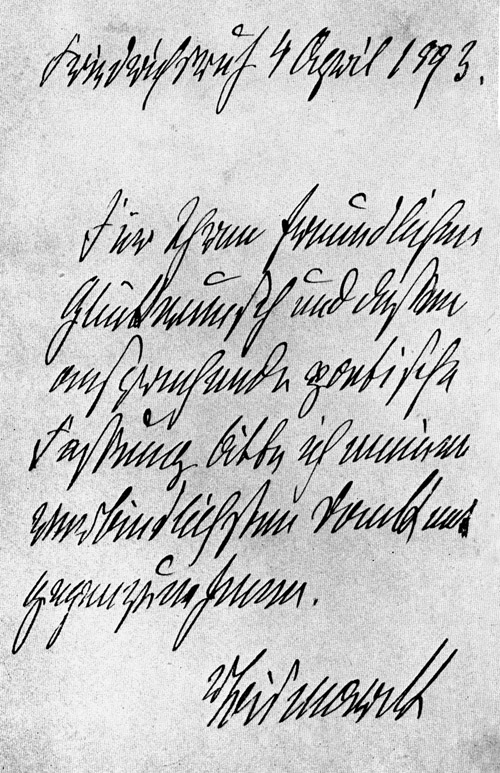 Friedrichsruh 4 April 1893.
Für Ihren freundlichen
Glückwunsch und dessen
ansprechende poetische
Fassung bitte ich meinen
verbindlichsten Dank ent
gegenzunehmen.
vBismarck